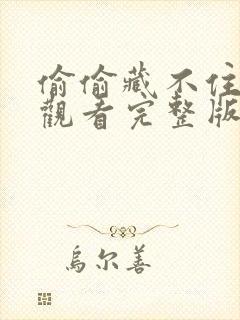 偷偷藏不住
觀看完整版
烏尔善